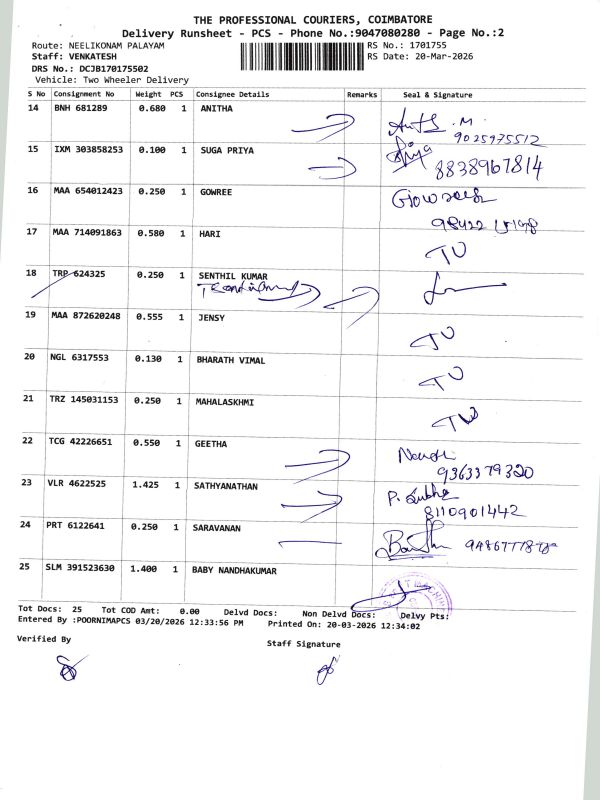 THE PROFESSIONAL COURIERS, COIMBATORE
Delivery Runsheet - PCS - Phone No.:9047080280 - Page No.:2
Route: NEELIKONAM PALAYAM RS No.: 1701755
Staff: VENKATESH RS Date: 20-Mar-2026
DRS No.: DCJB170175502
Vehicle: Two Wheeler Delivery
S No Consignment No Weight PCS Consignee Details Remarks Seal & Signature
14 BNH 681289 0.680 1 ANITHA
9025975512
15 IXM 303858253 0.100 1 SUGA PRIYA
8838967814
16 MAA 654012423 0.250 1 GOWREE
17 MAA 714091863 0.580 1 HARI
18 TRP 624325 0.250 1 SENTHIL KUMAR
19 MAA 872620248 0.555 1 JENSY
20 NGL 6317553 0.130 1 BHARATH VIMAL
21 TRZ 145031153 0.250 1 MAHALASKHMI
22 TCG 42226651 0.550 1 GEETHA
9363379320
23 VLR 4622525 1.425 1 SATHYANATHAN
8110901442
24 PRT 6122641 0.250 1 SARAVANAN
25 SLM 391523630 1.400 1 BABY NANDHAKUMAR
Tot Docs: 25 Tot COD Amt: 0.00 Delvd Docs: Non Delvd Docs: Delvy Pts:
Entered By :POORNIMAPCS 03/20/2026 12:33:56 PM Printed On: 20-03-2026 12:34:02
Verified By Staff Signature